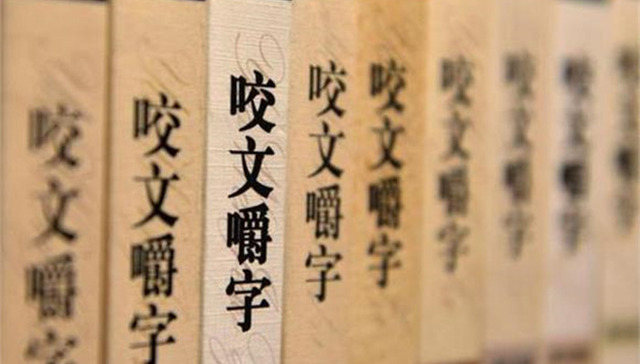 咬文嚼字
咬文嚼字
咬文嚼字
咬文嚼字
咬文嚼字
咬文嚼字
咬文嚼字
咬文嚼字